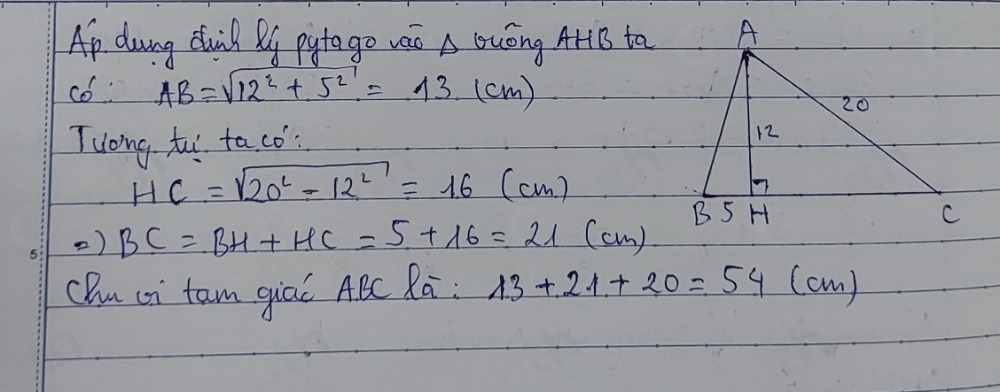 Áp dụng định lý pytago vào Δ vuông AHB ta
có: AB = √12² + 5² = 13 (cm)
Tương tự ta có:
HC = √20² - 12² = 16 (cm)
=) BC = BH + HC = 5 + 16 = 21 (cm)
Chu vi tam giác ABC là: 13 + 21 + 20 = 54 (cm)
A
20
12
B 5 H C
5